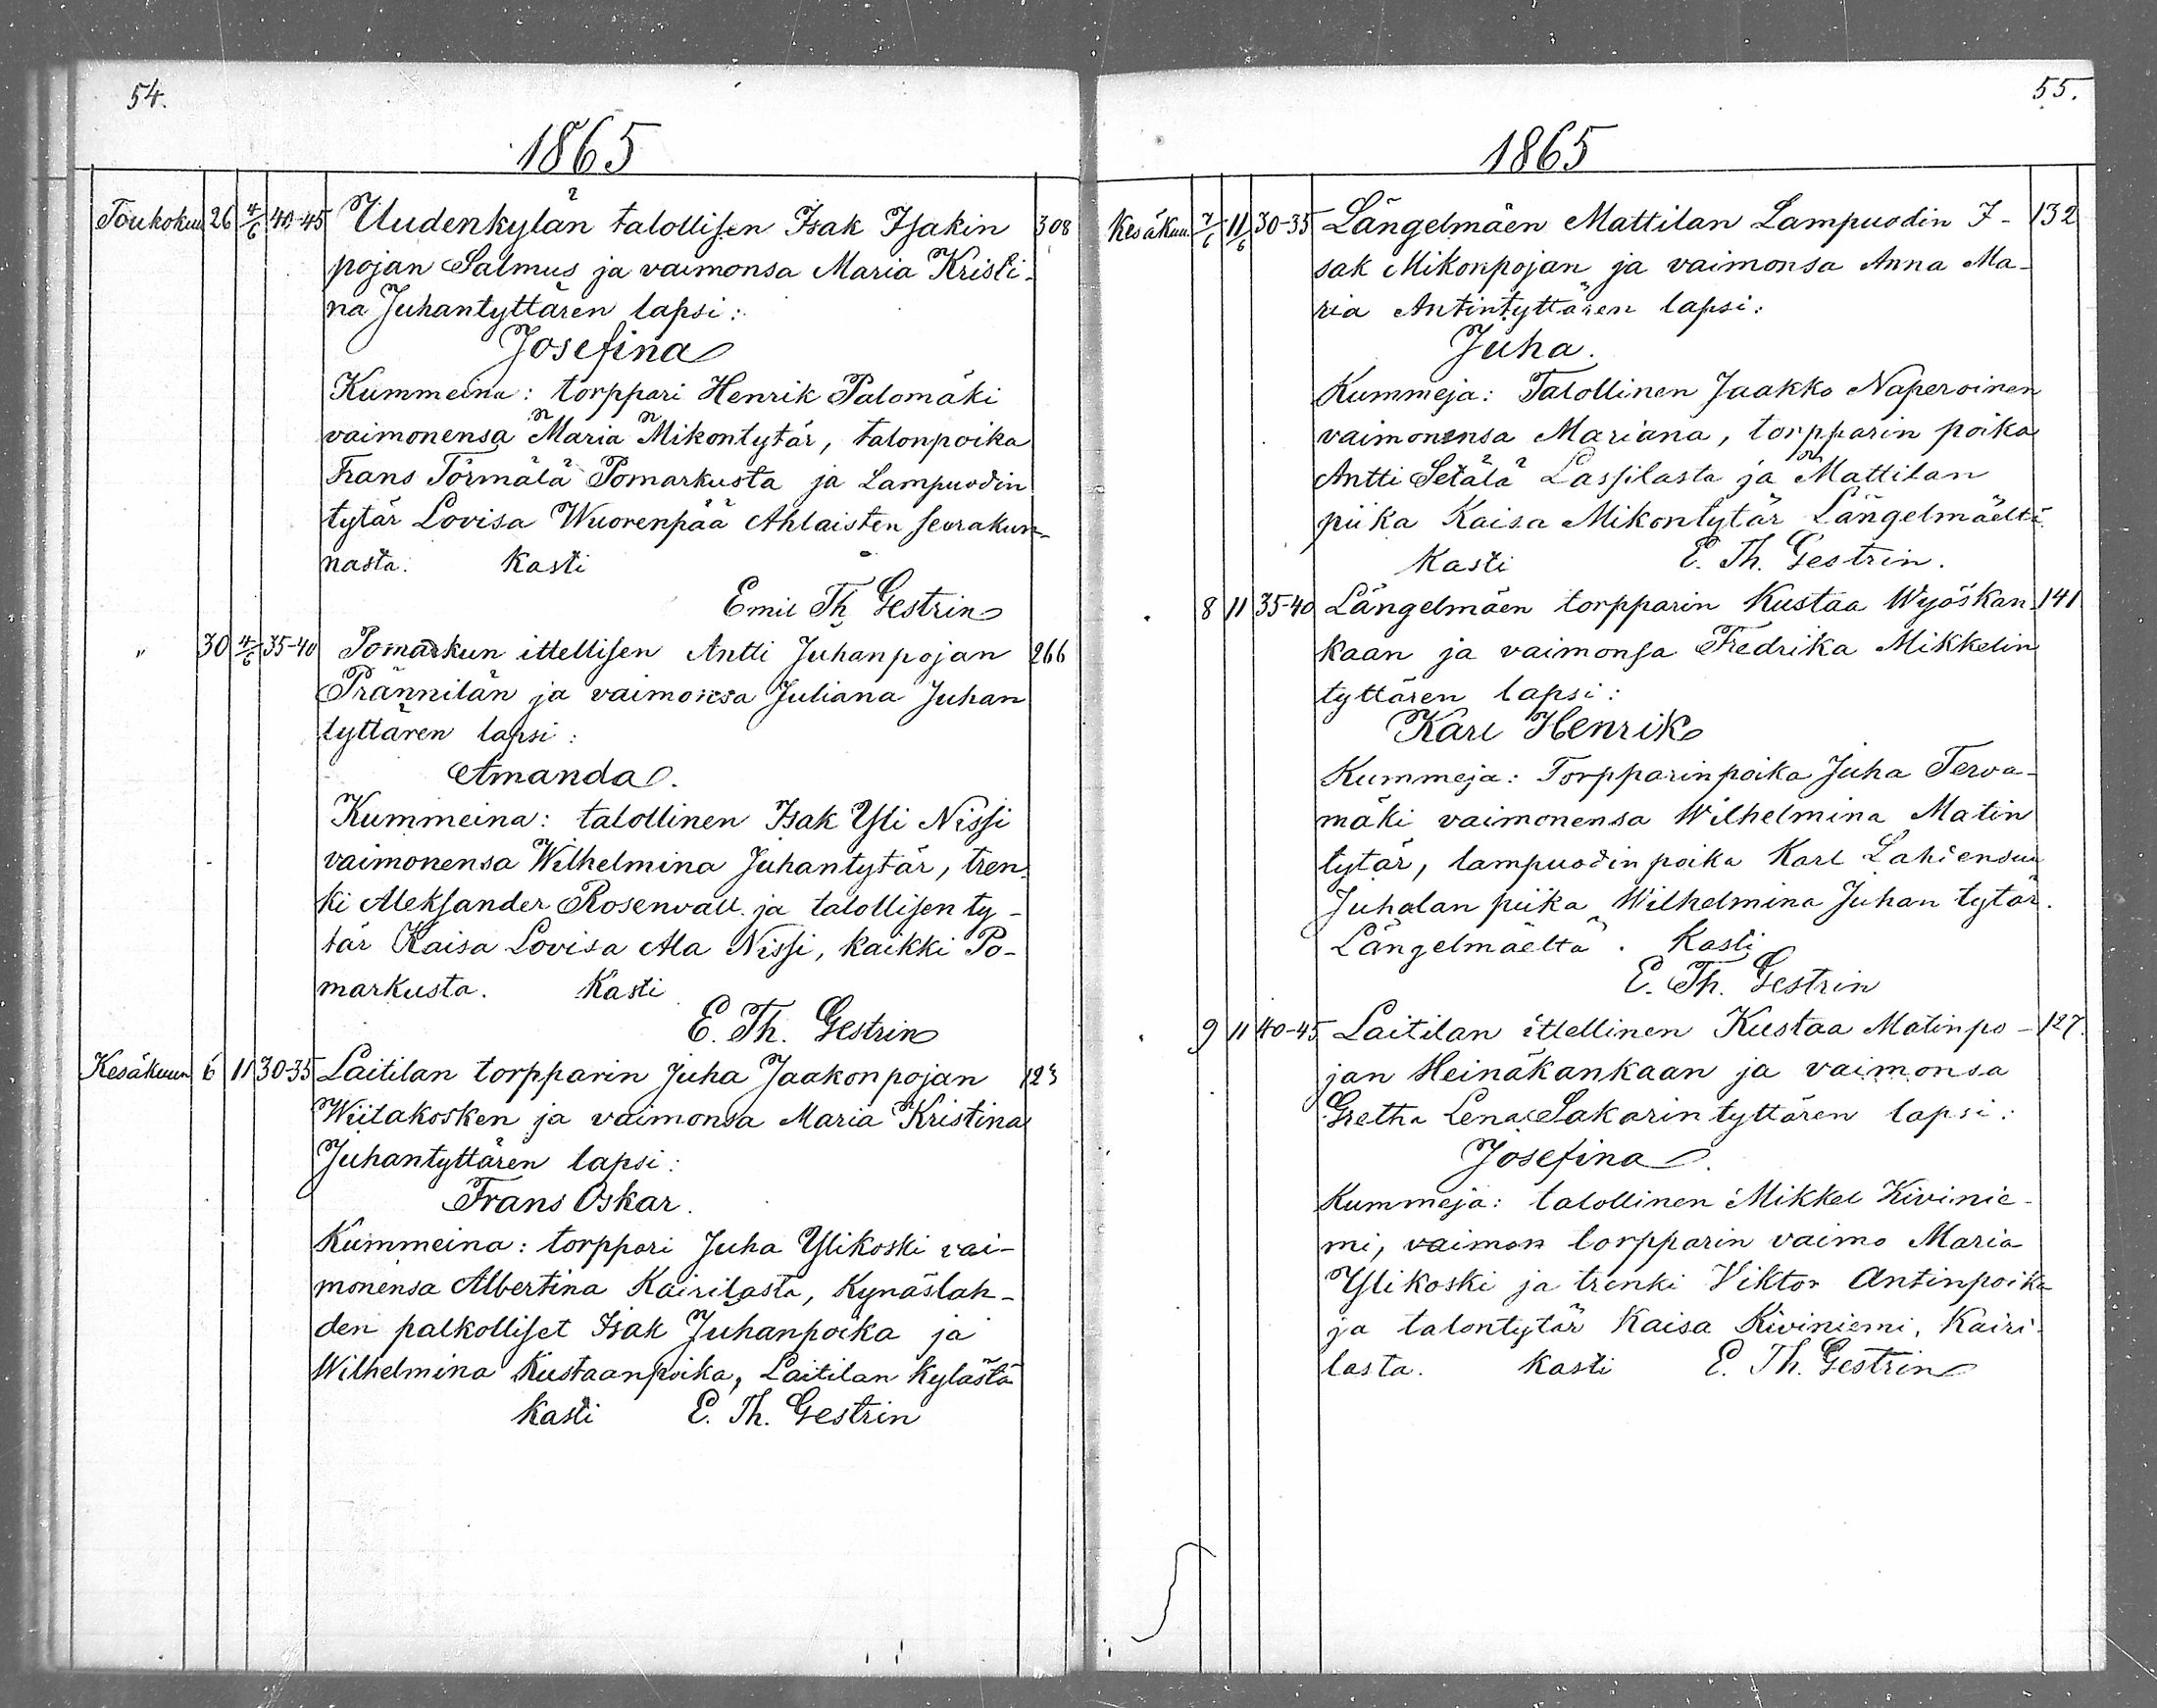 54.
1865
Toukokuu 26 4/6 40-45 Uudenkylän talollisen Isak Isakin 308
pojan Salmus ja vaimonsa Maria Kristi-
na Juhantyttären lapsi:
Josefina
Kummeina: torppari Henrik Palomäki
vaimonensa Maria Mikontytär, talonpoika
Frans Törmälä Pomarkusta ja Lampuodin
tytär Lovisa Wuorenpää Ahlaisten seurakun-
nasta. Kasti
Emil Th Gestrin
" 30 4/6 35-40 Pomarkun ittellisen Antti Juhanpojan 266
Prännilän ja vaimonsa Juliana Juhan
tyttären lapsi:
Amanda.
Kummeina: talollinen Isak Yli Nissi
vaimonensa Wilhelmina Juhantytär, tren-
ki Aleksander Rosenvall ja talollisen ty-
tär Kaisa Lovisa Ala Nissi, kaikki Po-
markusta. Kasti
E. Th. Gestrin
Kesäkuun 6 11 30-35 Laitilan torpparin Juha Jaakonpojan 123
Wiitakosken ja vaimonsa Maria Kristina
Juhantyttären lapsi:
Frans Oskar.
Kummeina: torppari Juha Ylikoski vai-
monensa Albertina Kairilasta, Kynäslah-
den palkolliset Isak Juhanpoika ja
Wilhelmina Kustaanpoika, Laitilan kylästä
Kasti E. Th. Gestrin
55.
1865
Kesäkuu 7/6 11/6 30-35 Längelmäen Mattilan Lampuodin I- 132
sak Mikonpojan ja vaimonsa Anna Ma-
ria Antintyttären lapsi:
Juha.
Kummeja: Talollinen Jaakko Naperoinen
vaimonensa Mariana, torpparin poika
Antti Setälä Lassilasta ja Mattilan
piika Kaisa Mikontytär Längelmäeltä
Kasti E. Th. Gestrin.
8 11 35-40 Längelmäen torpparin Kustaa Wyöskan- 141
kaan ja vaimonsa Fredrika Mikkelin
tyttären lapsi:
Karl Henrik
Kummeja: Torpparinpoika Juha Terva-
mäki vaimonensa Wilhelmina Matin
tytär, lampuodin poika Karl Lahdensuu
Juhalan piika Wilhelmina Juhan tytär.
Längelmäeltä. Kasti
E. Th. Gestrin
9 11 40-45 Laitilan ittellinen Kustaa Matinpo- 127.
jan Heinäkankaan ja vaimonsa
Gretha Lena Sakarintyttären lapsi:
Josefina.
Kummeja: talollinen Mikkel Kivinie-
mi, vaimon torpparin vaimo Maria
Ylikoski ja trenki Viktor Antinpoika
ja talontytär Kaisa Kiviniemi, Kairi-
lasta. Kasti E. Th. Gestrin